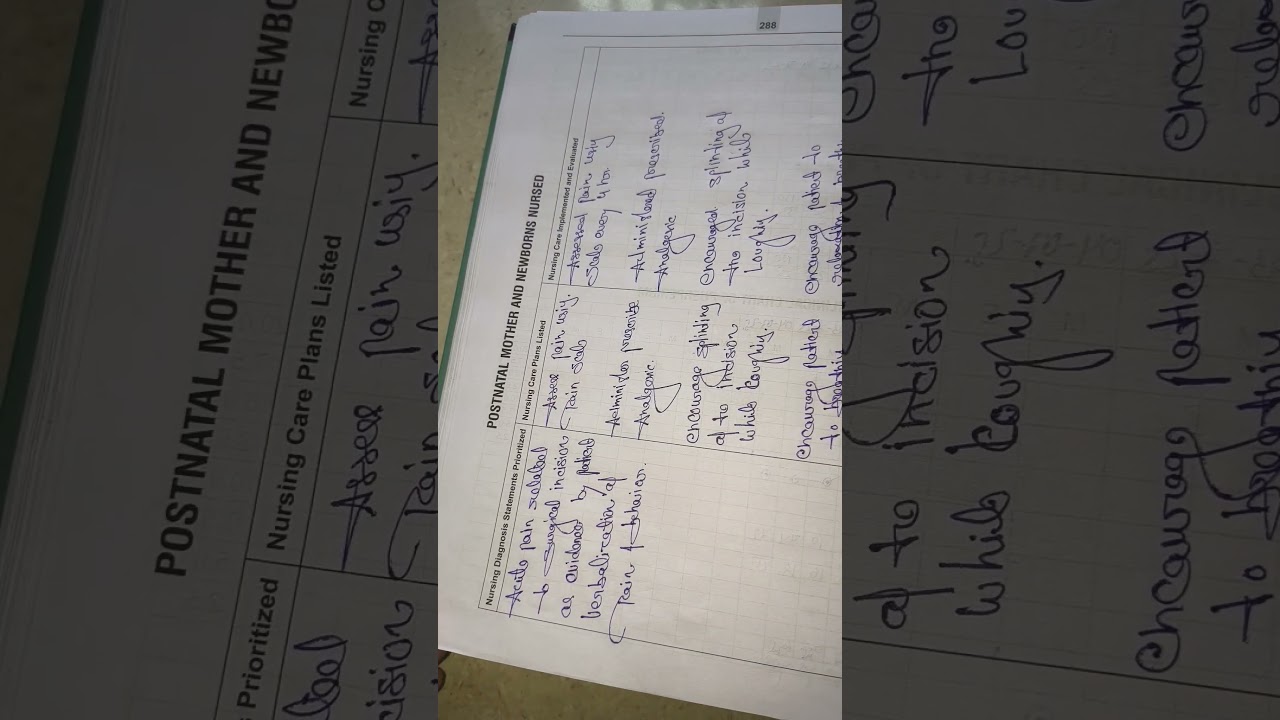 288
POSTNATAL MOTHER AND NEWBORNS NURSED
Nursing Diagnosis Statements Prioritized
Acute pain related
to surgical incision
as evidenced by patient
Verbalization of
pain & behavior.
Nursing Care Plans Listed
Assess pain using
Pain scale
Administer prescribe
Analgesic.
Encourage splinting
of to incision
while Coughing.
Encourage patient
to
Nursing Care Implemented and Evaluated
Assessed pain using
Scale every 4 hr
Administered prescribed.
Analgesic
encouraged splinting of
the incision while
Coughing.
Encourage patient to